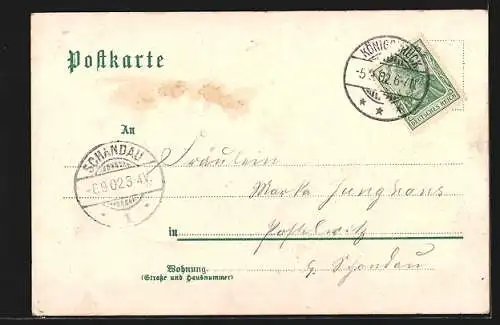 Postkarte
KÖNIGSBRÜCK
-5.9.02.6-7N.
DEUTSCHES REICH
An
SCHANDAU
-6.9.02.5-4V.
1
Fräulein
Marta Junghans
in Postelwitz
b. Schandau
Wohnung
(Straße und Hausnummer)